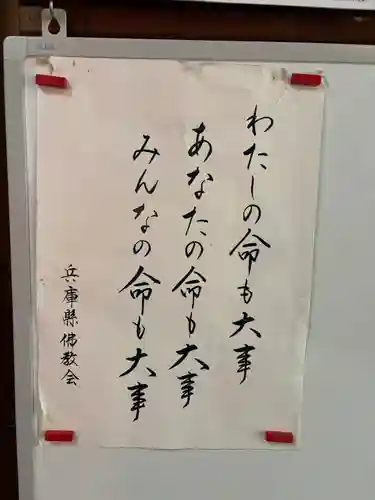 わたしの命も大事
あなたの命も大事
みんなの命も大事
兵庫縣佛教会